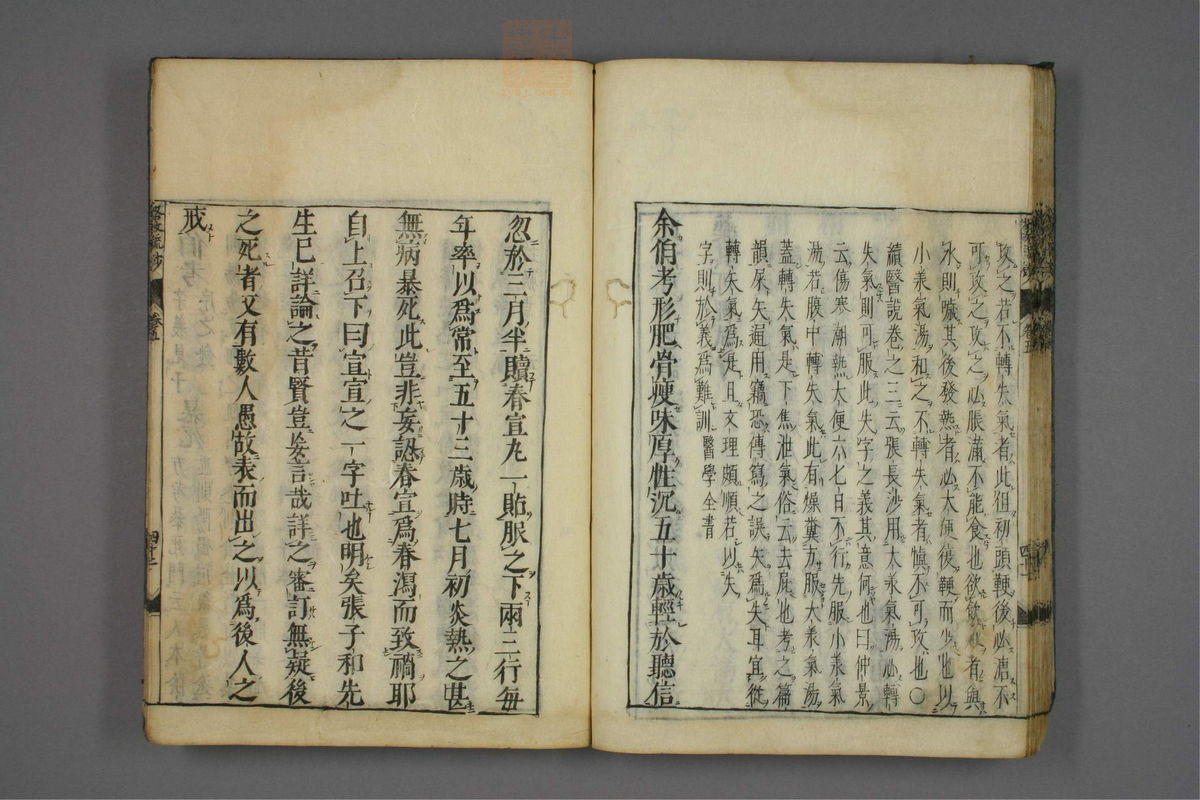 攻之若不轉失氣者此但初頭鞕後必溏不
可攻之攻之必脹滿不能食也欲飲水者與
水則噦其後發熱者必大便後鞕而少也以
小承氣湯和之不轉失氣者愼不可攻也〇
續醫説卷之三云張長沙用大承氣湯必轉
失氣則可服此失字之義其意何也曰仲景
云傷寒潮熱大便六七日不行先服小承氣
湯若腹中轉失氣此有燥糞方服大承氣湯
蓋轉失氣是下焦泄氣俗云去屁也考之篇
韻屎矢通用竊恐傳寫之誤矢爲失耳宜從
轉矢氣爲是且文理頗順若以失
字則於義爲難訓 醫學全書
余伯考形肥骨瘦味厚性沉五十歲輕於聽信
忽於三月半贖春宣丸一貼服之下兩三行每
年率以爲常至五十三歲時七月初炎熱之甚
無病暴死此豈非妄認春宣爲春瀉而致禍耶
自上召下曰宣宣之一字吐也明矣張子和先
生已詳論之昔賢豈妄言哉詳之審訂無疑後
之死者又有數人愚故表而出之以爲後人之
戒
卷五
四十二